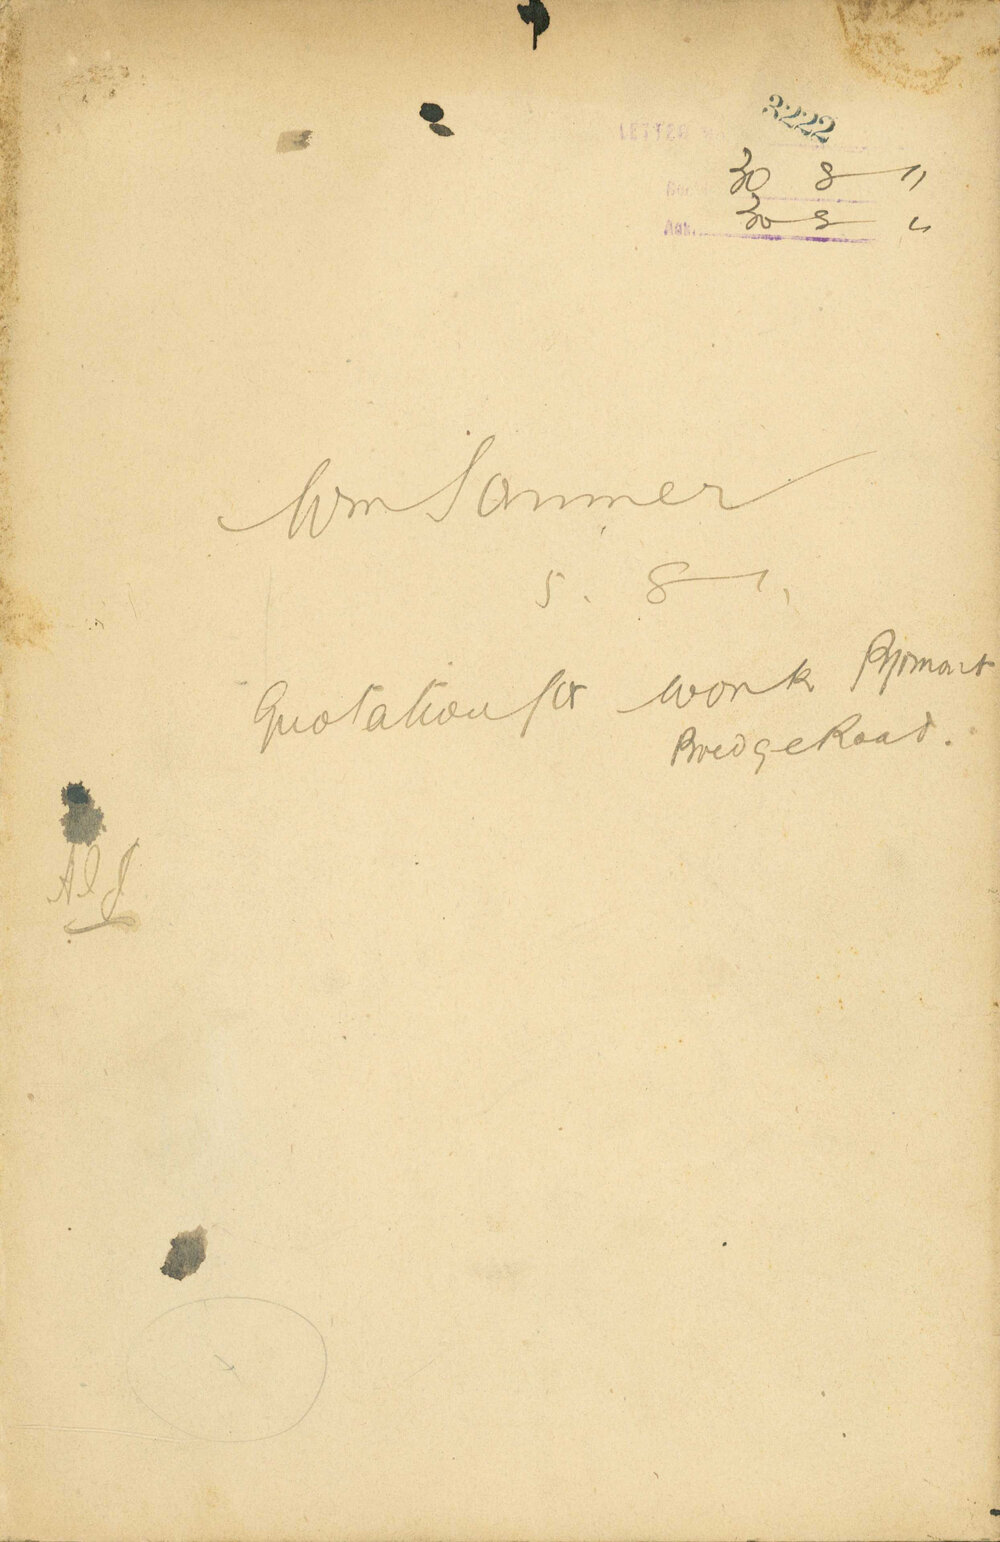 LETTER No. 3222
Rec. 30 8 11
Ans. 30 8 11
Wm Sammer
5. 8 11
Quotation for work Pyrmont
Bridge Road.